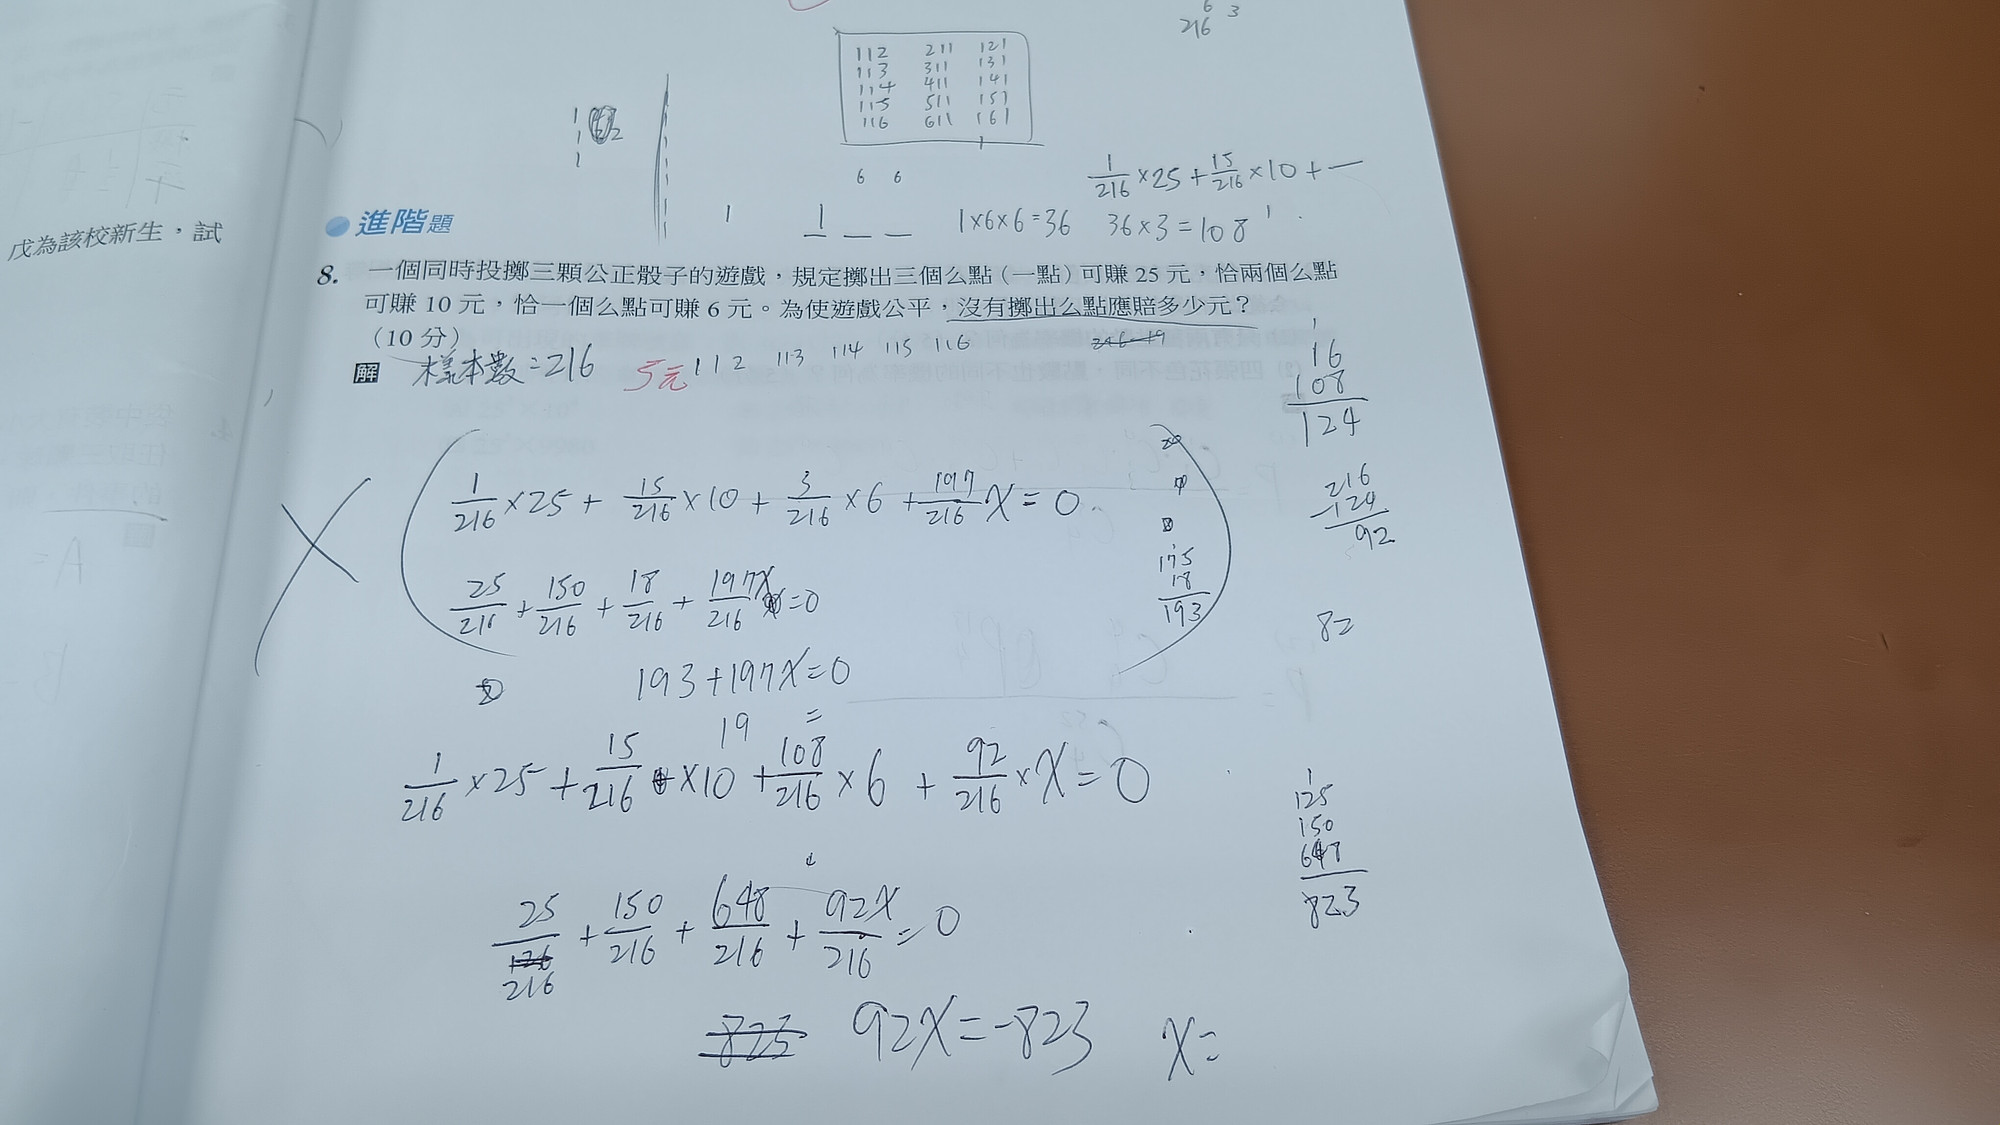 6
216 3
112 211 121
113 311 131
114 411 141
115 511 151
116 611 161
1
1
1
2
6 6
1/216 ×25 + 15/216 ×10 + —
1
1
1×6×6=36 36×3=108
戊為該校新生，試
進階題
8. 一個同時投擲三顆公正骰子的遊戲，規定擲出三個么點（一點）可賺 25 元，恰兩個么點
可賺 10 元，恰一個么點可賺 6 元。為使遊戲公平，沒有擲出么點應賠多少元？
（10 分）
解 樣本數=216 5元 112 113 114 115 116
16
108
124
216
-124
92
82
1/216 ×25 + 15/216 ×10 + 3/216 ×6 + 197/216 X = 0
25/216 + 150/216 + 18/216 + 197X/216 =0
175
18
193
193+197X=0
19 =
1/216 ×25 + 15/216 ×10 + 108/216 ×6 + 92/216 ×X = 0
125
150
648
823
25/216 + 150/216 + 648/216 + 92X/216 = 0
823 92X=-823 X=